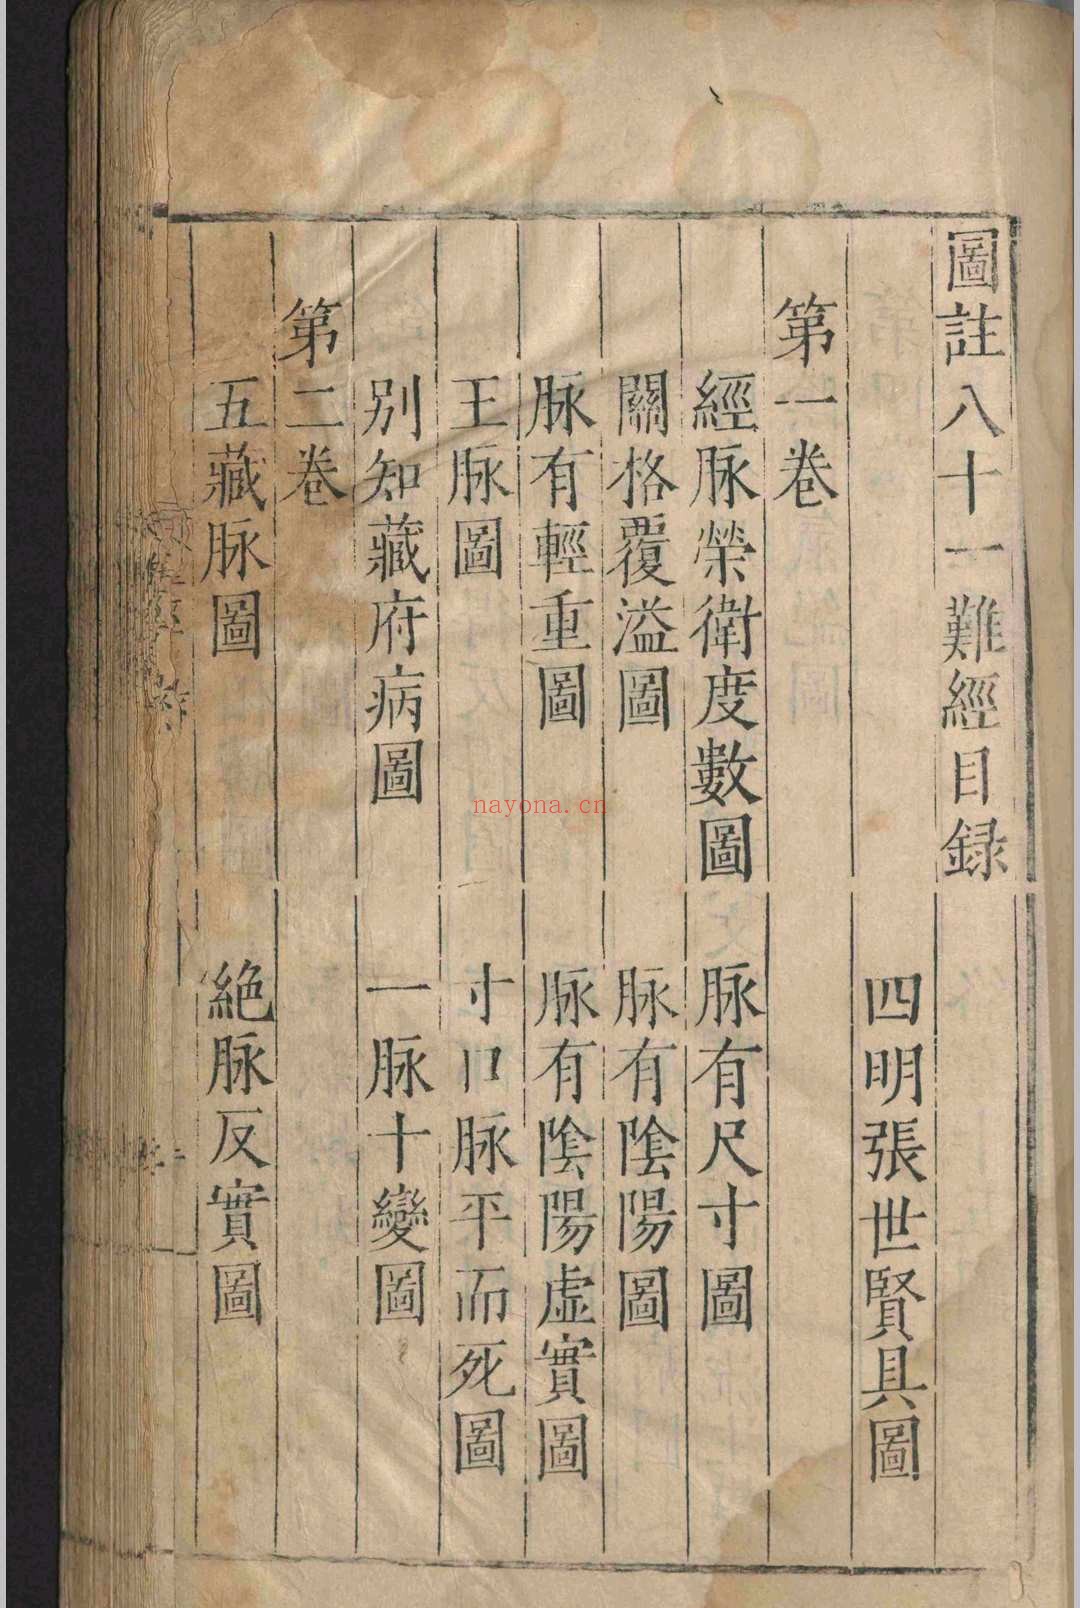 圖註八十一難經目録
四明張世賢具圖
第一卷
經脉榮衛度數圖 脉有尺寸圖
關格覆溢圖 脉有隂陽圖
脉有輕重圖 脉有隂陽虛實圖
王脉圖 寸口脉平而死圖
别知藏府病圖 一脉十變圖
第二卷
五藏脉圖 絶脉反實圖
nayona.cn